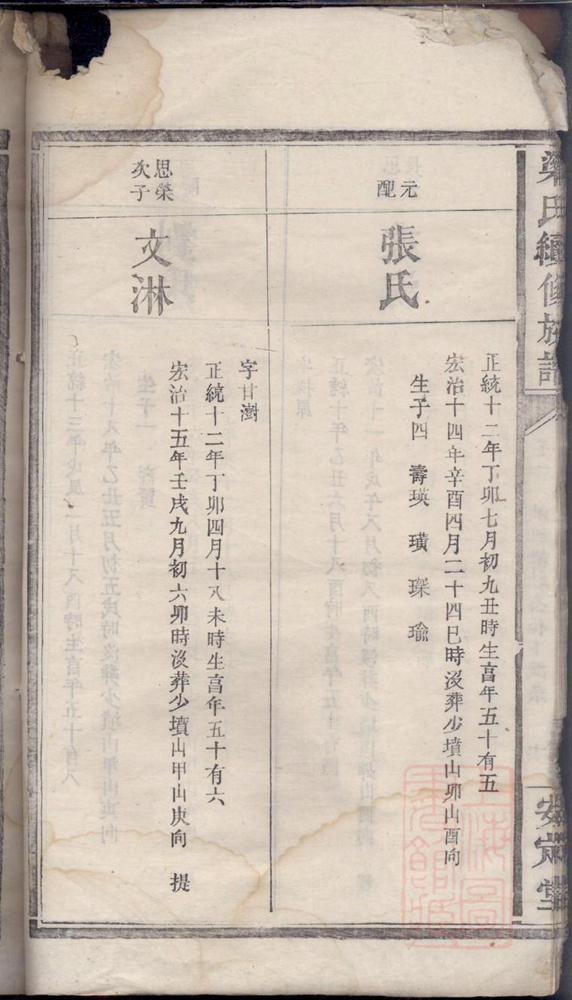 梁氏續修族譜
安定堂
元配
張氏
正統十二年丁卯七月初九丑時生高年五十有五
宏治十四年辛酉四月二十四巳時沒葬少墳山卯山酉向
生子四 壽瑛 璜 琛 瑜
思榮次子
文淋
字甘澍
正統十二年丁卯四月十八未時生高年五十有六
宏治十五年壬戌九月初六卯時沒葬少墳山甲山庚向 提